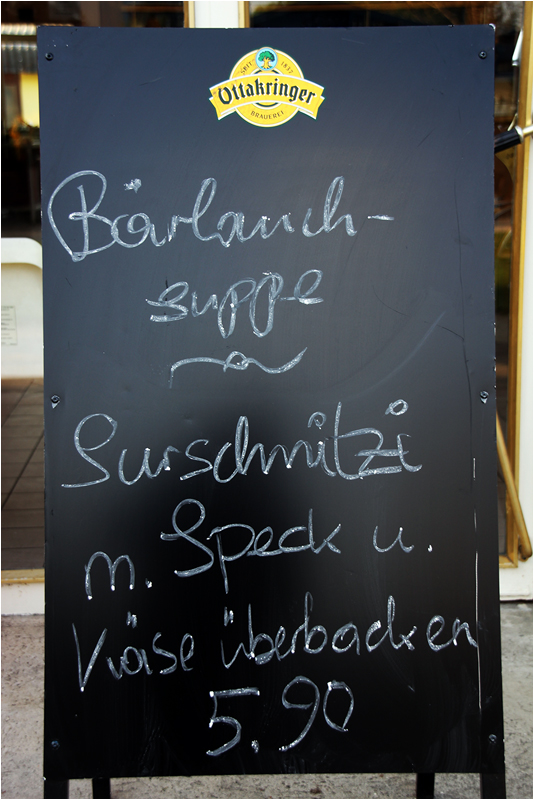 SEIT 1837
Ottakringer
BRAUEREI
Bärlauch-
suppe
Surschnitzi
m. Speck u.
Käse überbacken
5.90